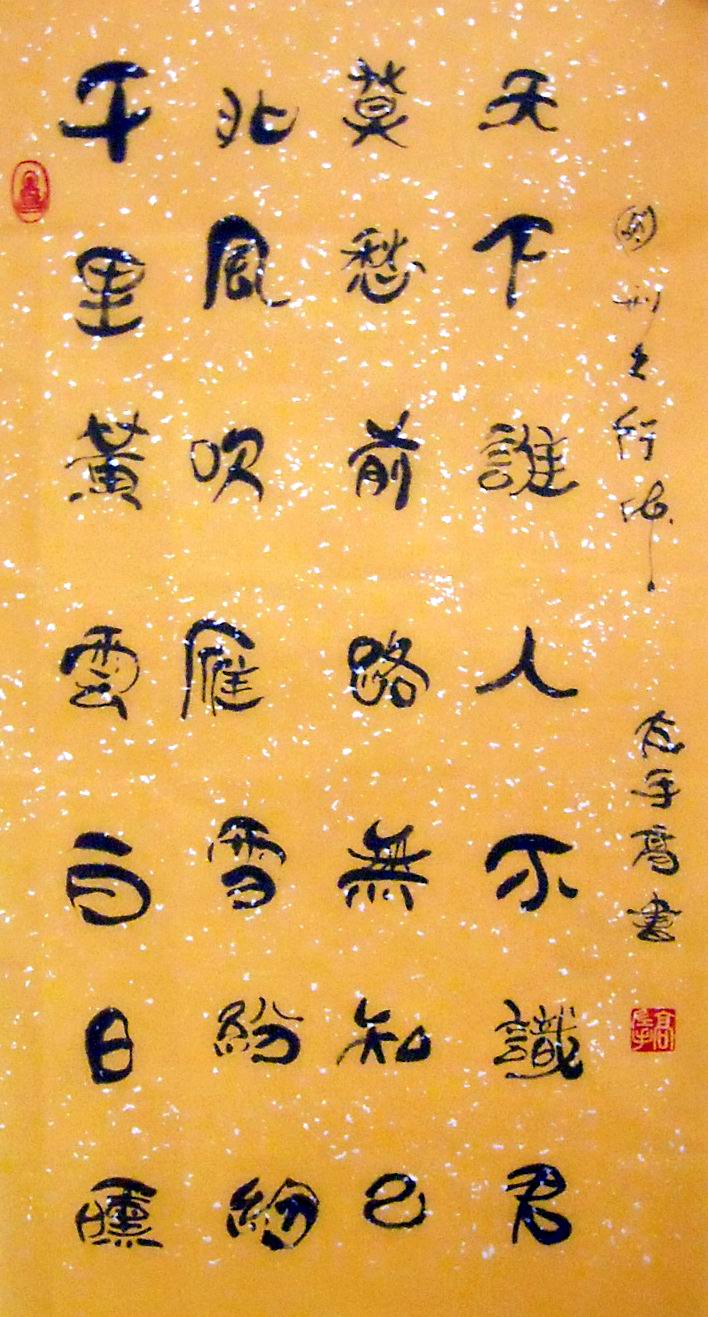 千里黃雲白日曛
北風吹雁雪紛紛
莫愁前路無知己
天下誰人不識君
左手高書